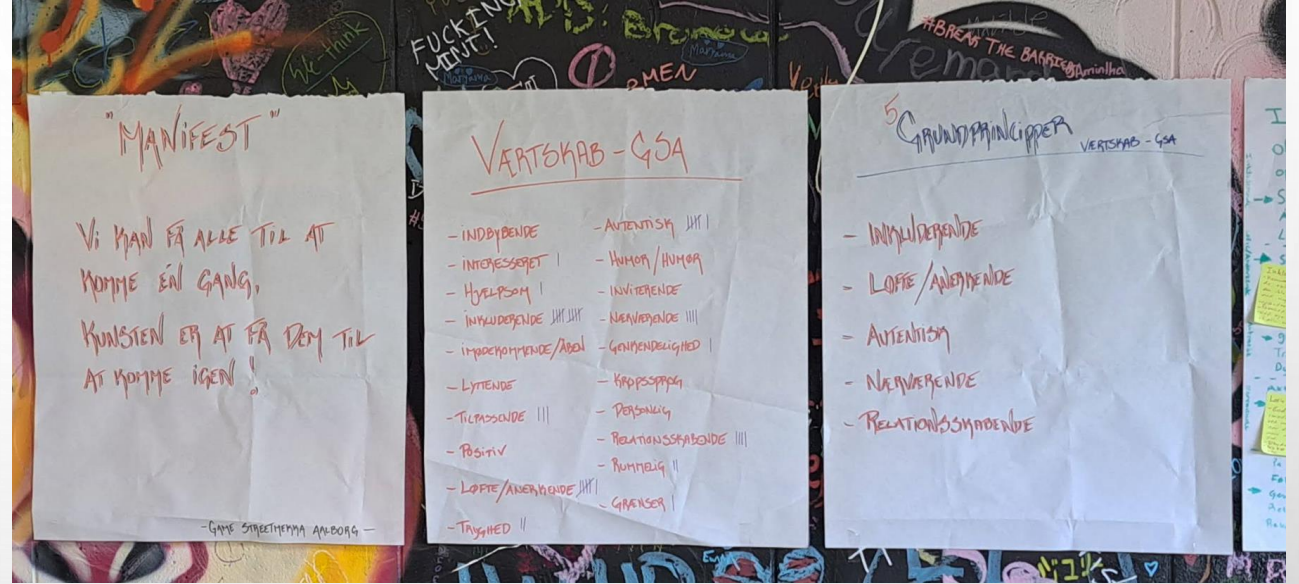 "MANIFEST"
VI KAN FÅ ALLE TIL AT
KOMME ÉN GANG,
KUNSTEN ER AT FÅ DEM TIL
AT KOMME IGEN!
-GAME STREETMEKKA AALBORG-
VÆRTSKAB-GSA
- INDBYDENDE
- INTERESSERET |
- HJÆLPSOM |
- INKLUDERENDE |||| ||||
- IMØDEKOMMENDE/ÅBEN
- LYTTENDE
- TILPASSENDE |||
- POSITIV
- LØFTE/ANERKENDE |||| |
- TRYGHED ||
- AUTENTISK |||| |
- HUMOR/HUMØR
- INVITERENDE
- NÆRVÆRENDE ||||
- GENKENDELIGHED |
- KROPSSPROG
- PERSONLIG
- RELATIONSSKABENDE ||||
- RUMMELIG ||
- GRÆNSER |
5 GRUNDPRINCIPPER
VÆRTSKAB-GSA
- INKLUDERENDE
- LØFTE/ANERKENDE
- AUTENTISK
- NÆRVÆRENDE
- RELATIONSSKABENDE
FUCKING
MINT!
#BREAK THE BARRIER
Mariama
MEN